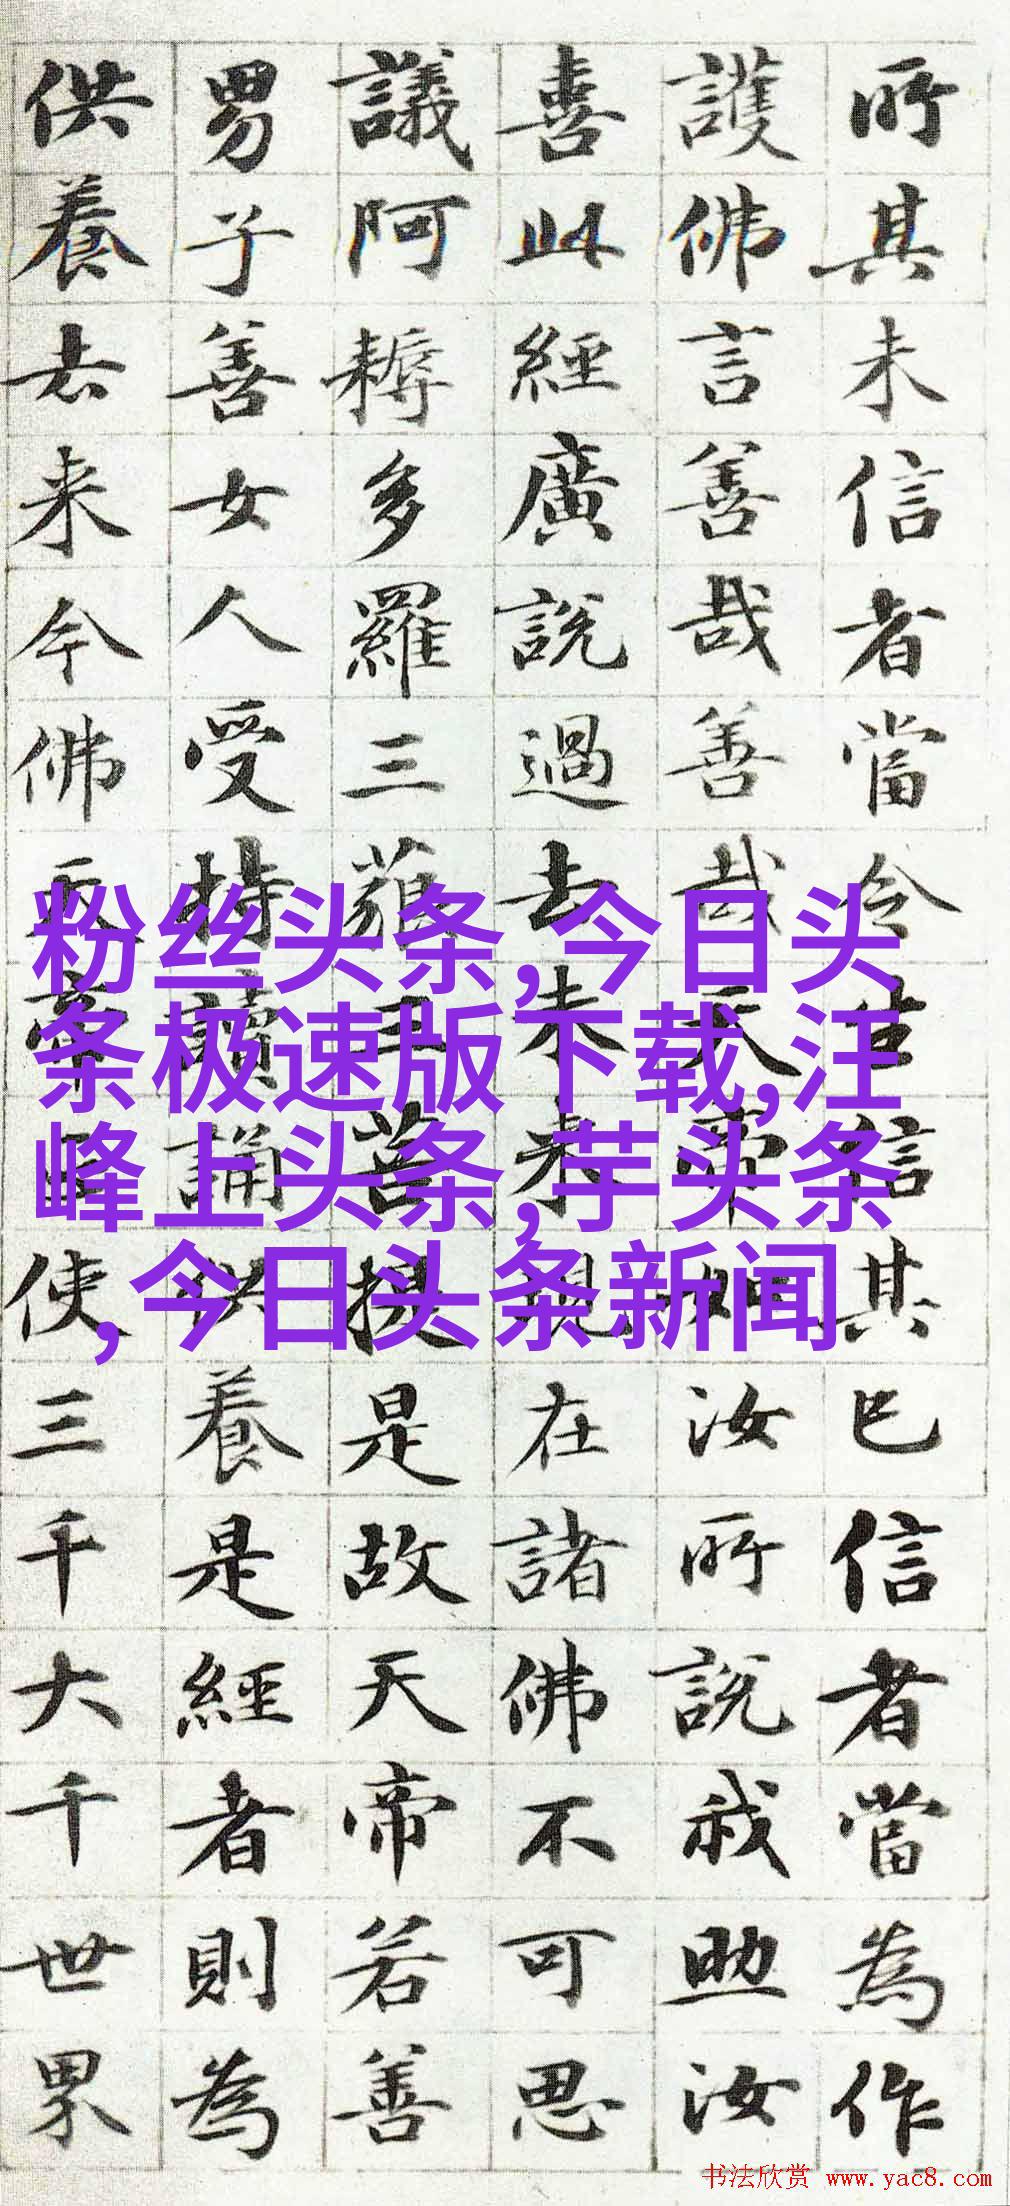 所其未信者當令信其已信者當為作
護佛言善哉善哉天帝如汝所說我助汝
喜此經廣說過去未來現在諸佛不可思
議阿耨多羅三藐三菩提是故天帝若善
男子善女人受持讀誦供養是經者則為
供養去来今佛天帝正使三千大千世界
粉丝头条,今日头
条极速版下载,汪
峰上头条,芋头条
,今日头条新闻
书法欣赏 www.yac8.com